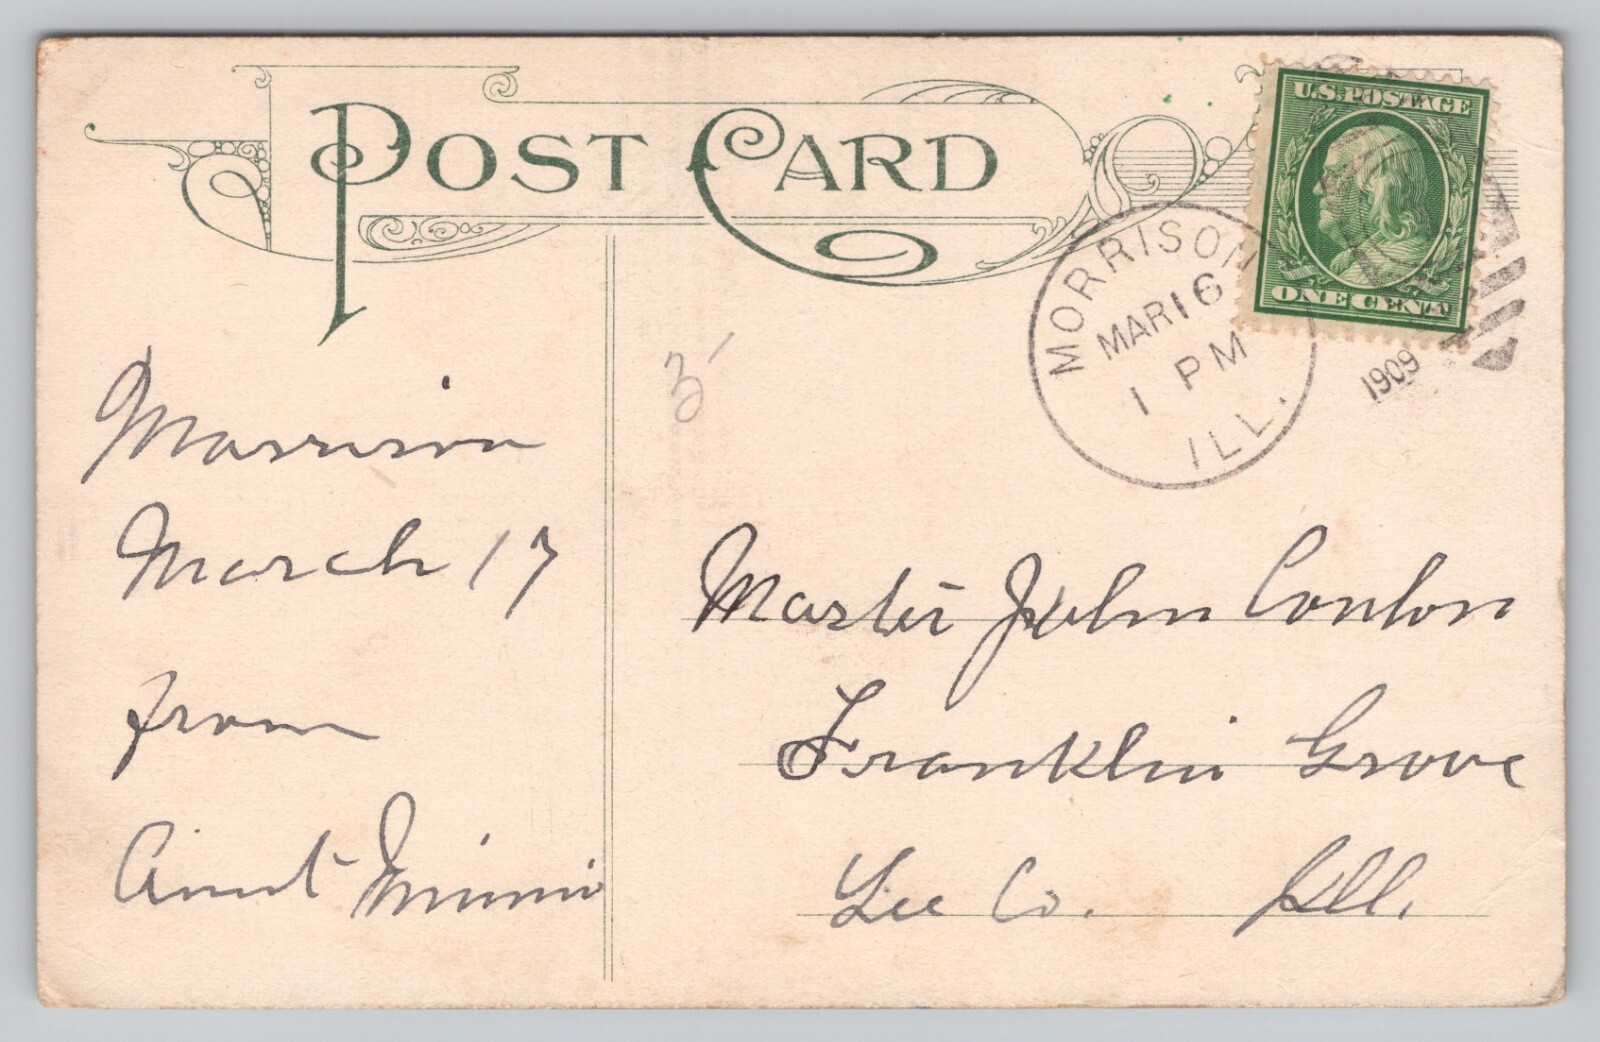 POST CARD
U.S. POSTAGE
ONE CENT
MORRISON
MAR 16
1 PM
ILL.
1909
3
Morrison
March 17
from
Aunt Minnie
Master John Conlon
Franklin Grove
Lee Co. Ill.